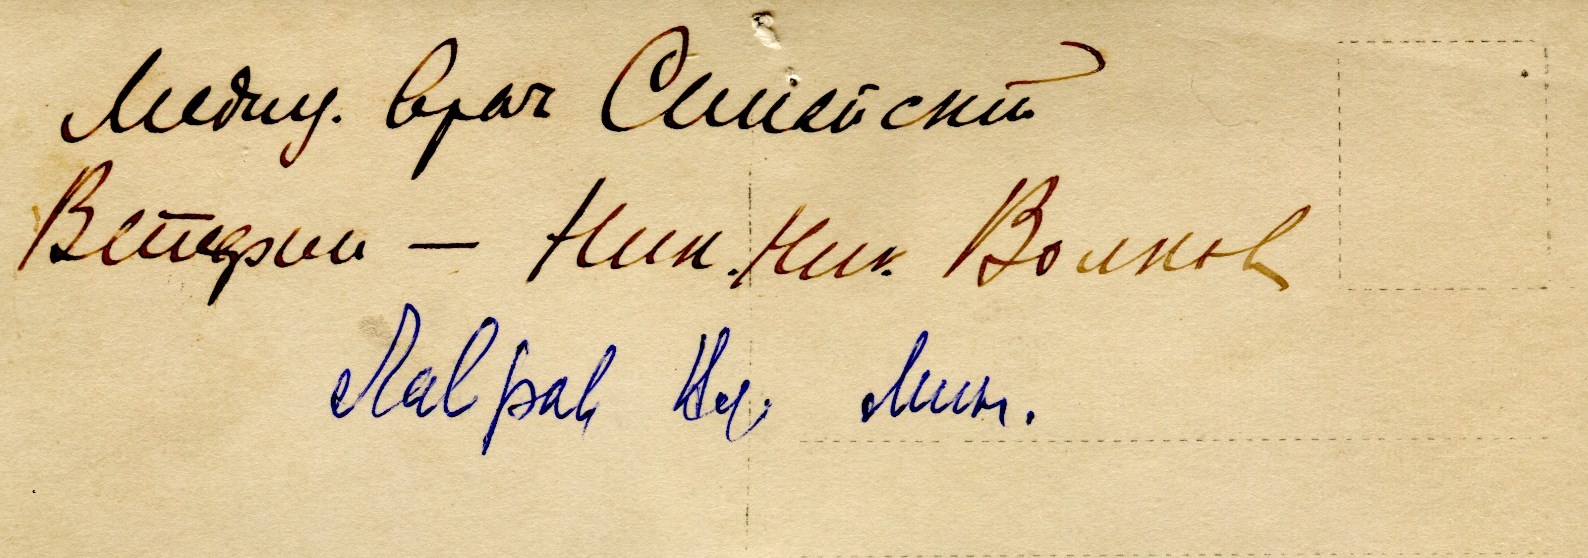 Медиц. врач Синайский
Ветерин — Ник. Ник. Волков
Лавров